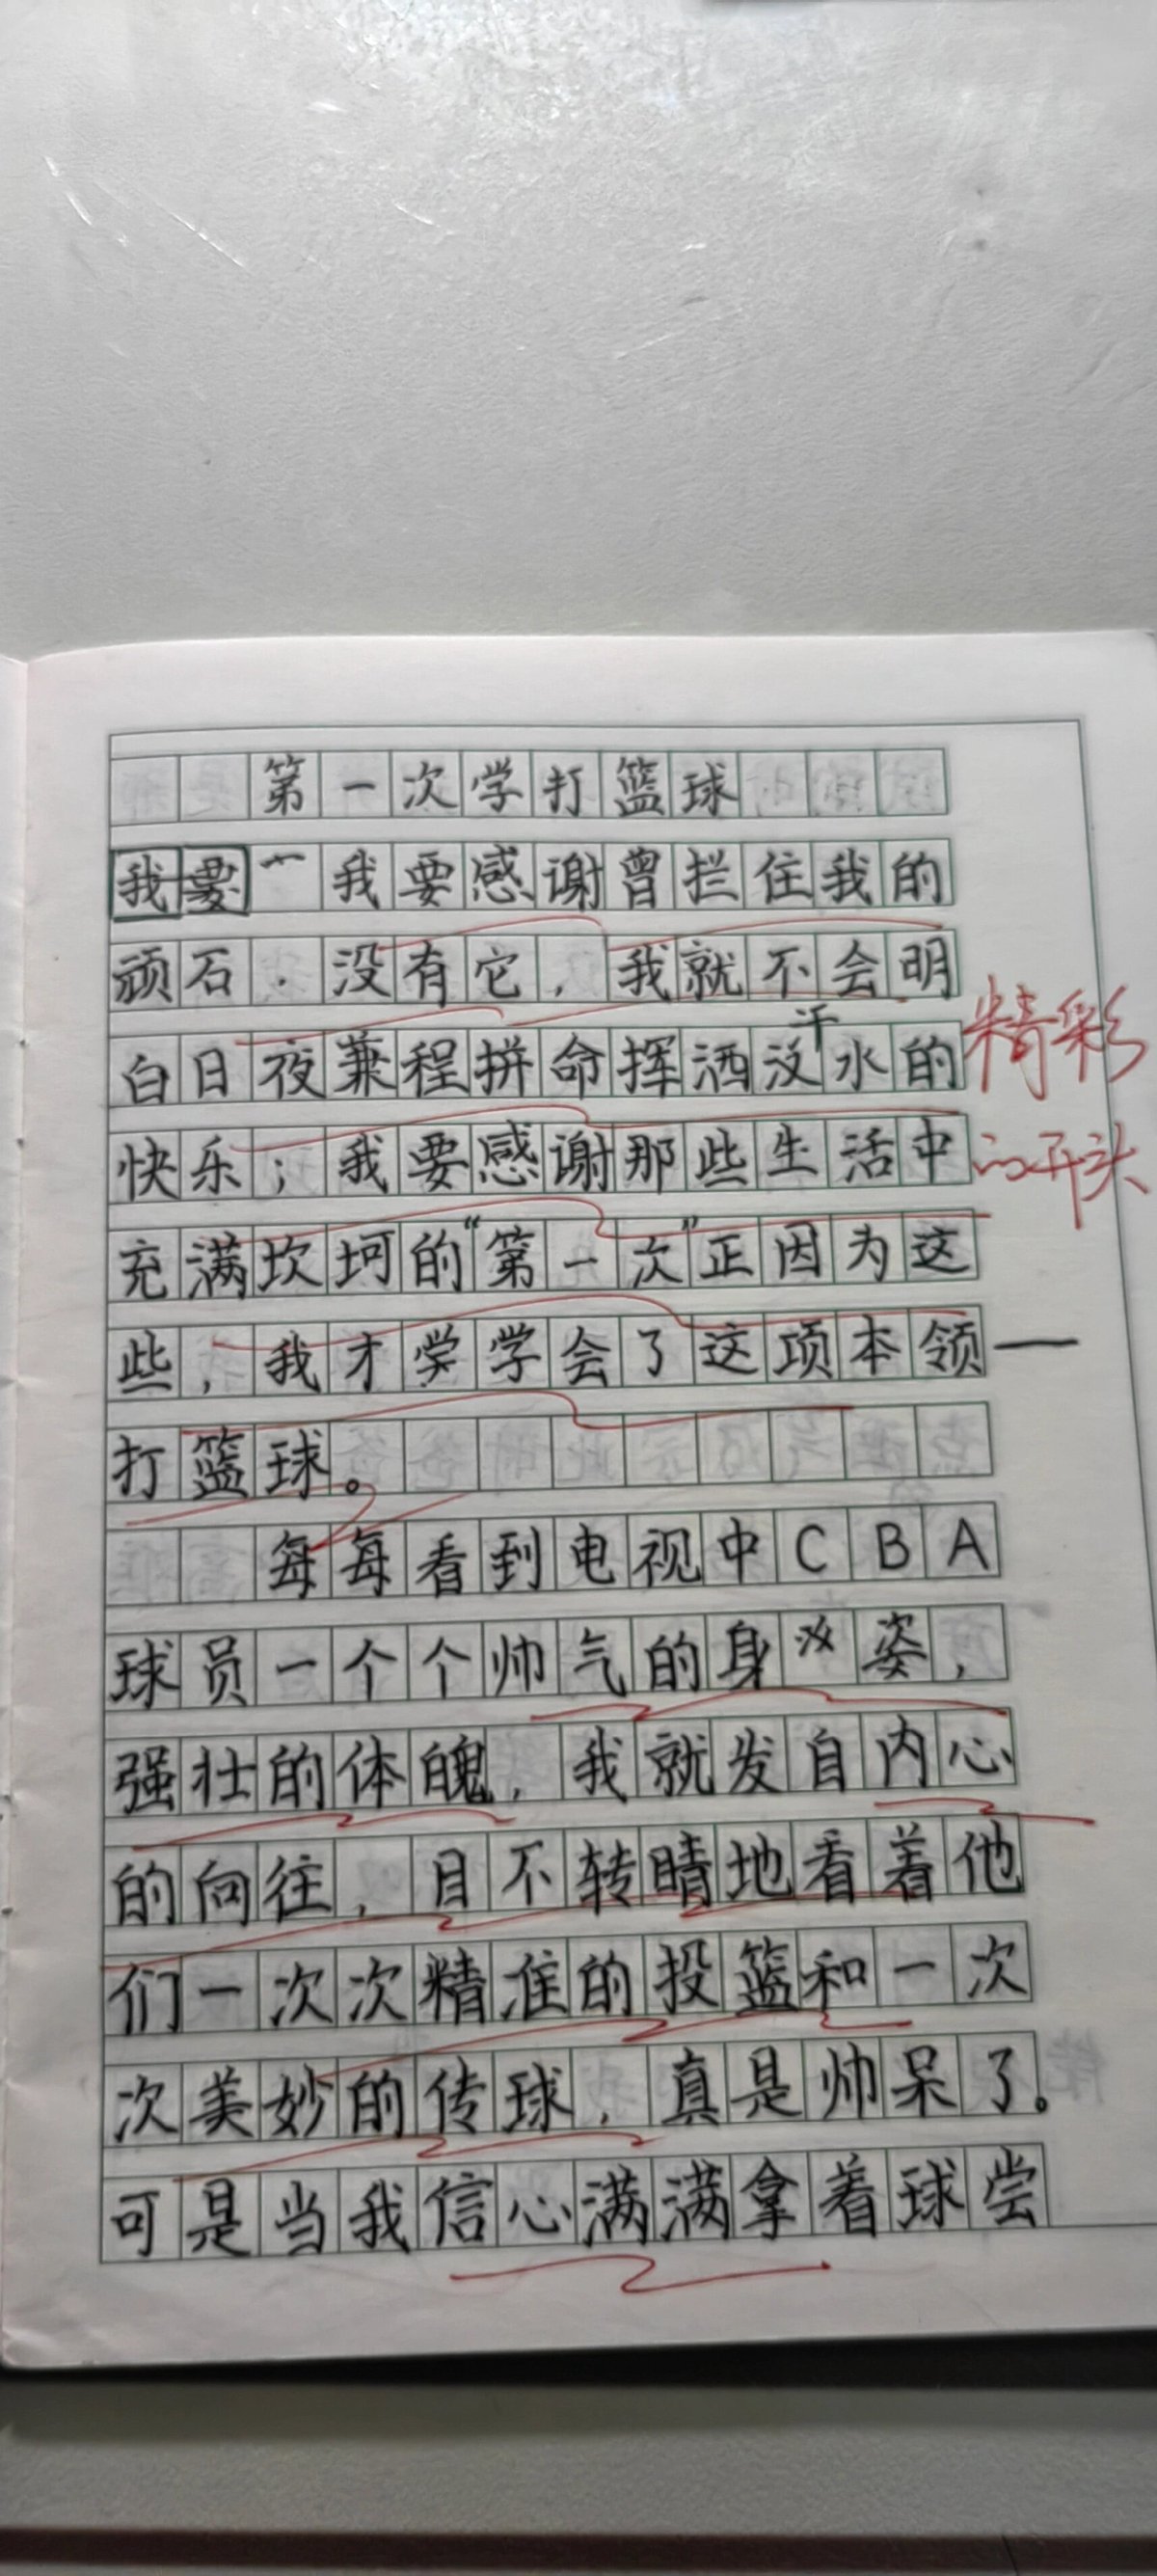 第一次学打篮球
我要感谢曾拦住我的
顽石.没有它，我就不会明
白日夜兼程拼命挥洒汗水的
快乐；我要感谢那些生活中
充满坎坷的“第一次”正因为这
些，我才学会了这项本领—
打篮球。
每每看到电视中CBA
球员一个个帅气的身姿，
强壮的体魄，我就发自内心
的向往，目不转睛地看着他
们一次次精准的投篮和一次
次美妙的传球，真是帅呆了。
可是当我信心满满拿着球尝
精彩
的开头